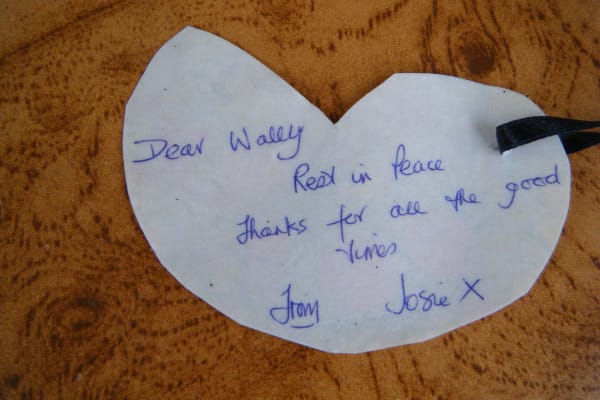 Dear Wally
Rest in Peace
thanks for all the good
times
From Josie X